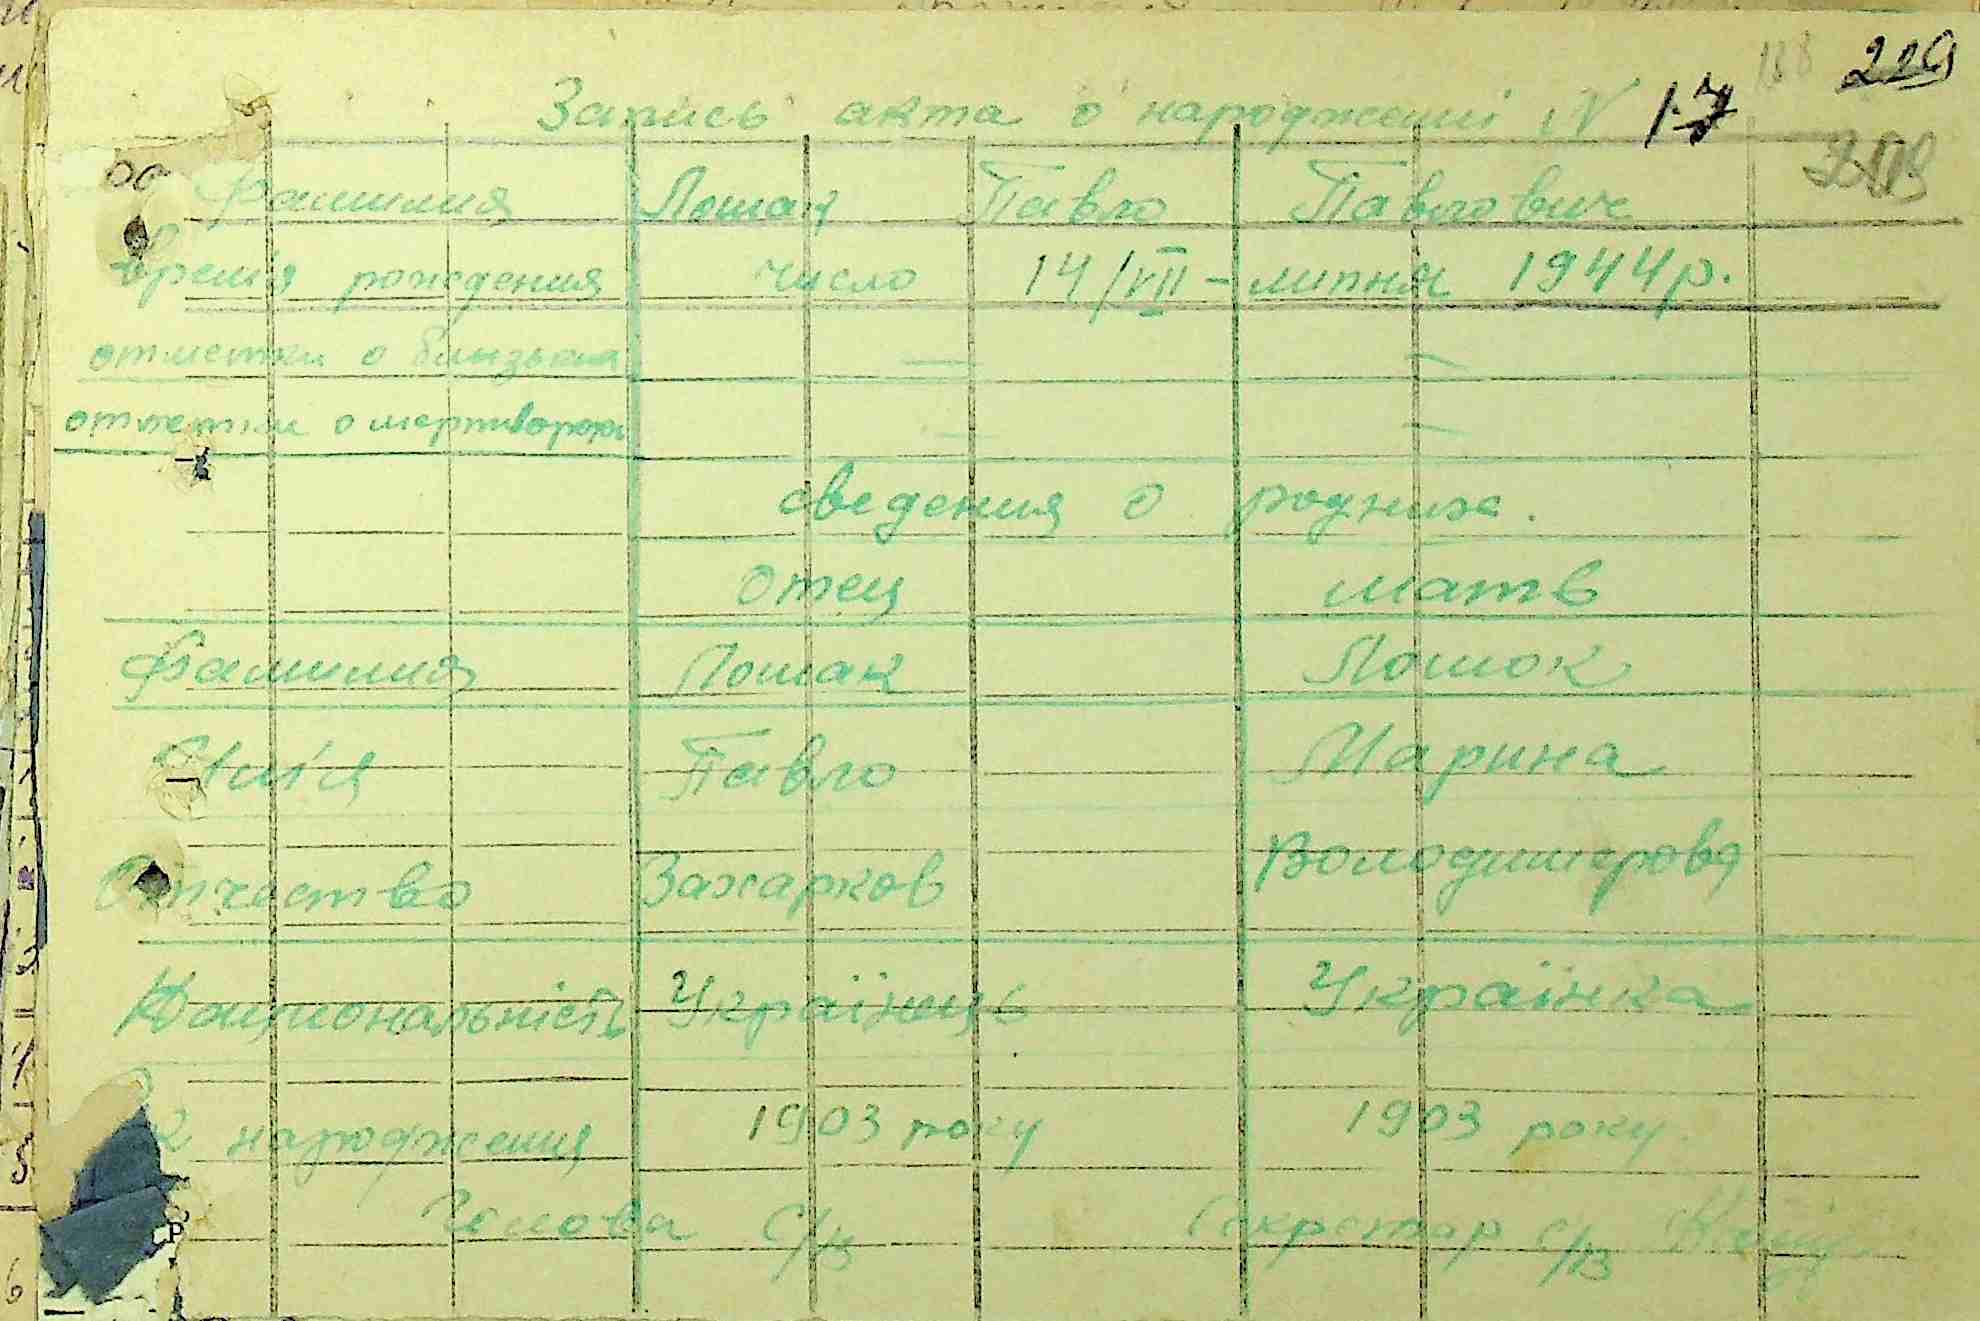 229
188
Запись акта о народженні N 17
Фамилия Лошак Павло Павлович
Время рождения число 14/VII - липня 1944 р.
отметки о близьнях — —
отметки о мертворож — —
сведения о родних.
Отец мать
Фамилия Лошак Лошок
Им'я Павло Марина
Отчество Захарков Володимерова
Національність Українець Українка
народження 1903 року 1903 року.
Голова С/В Секретар с/в